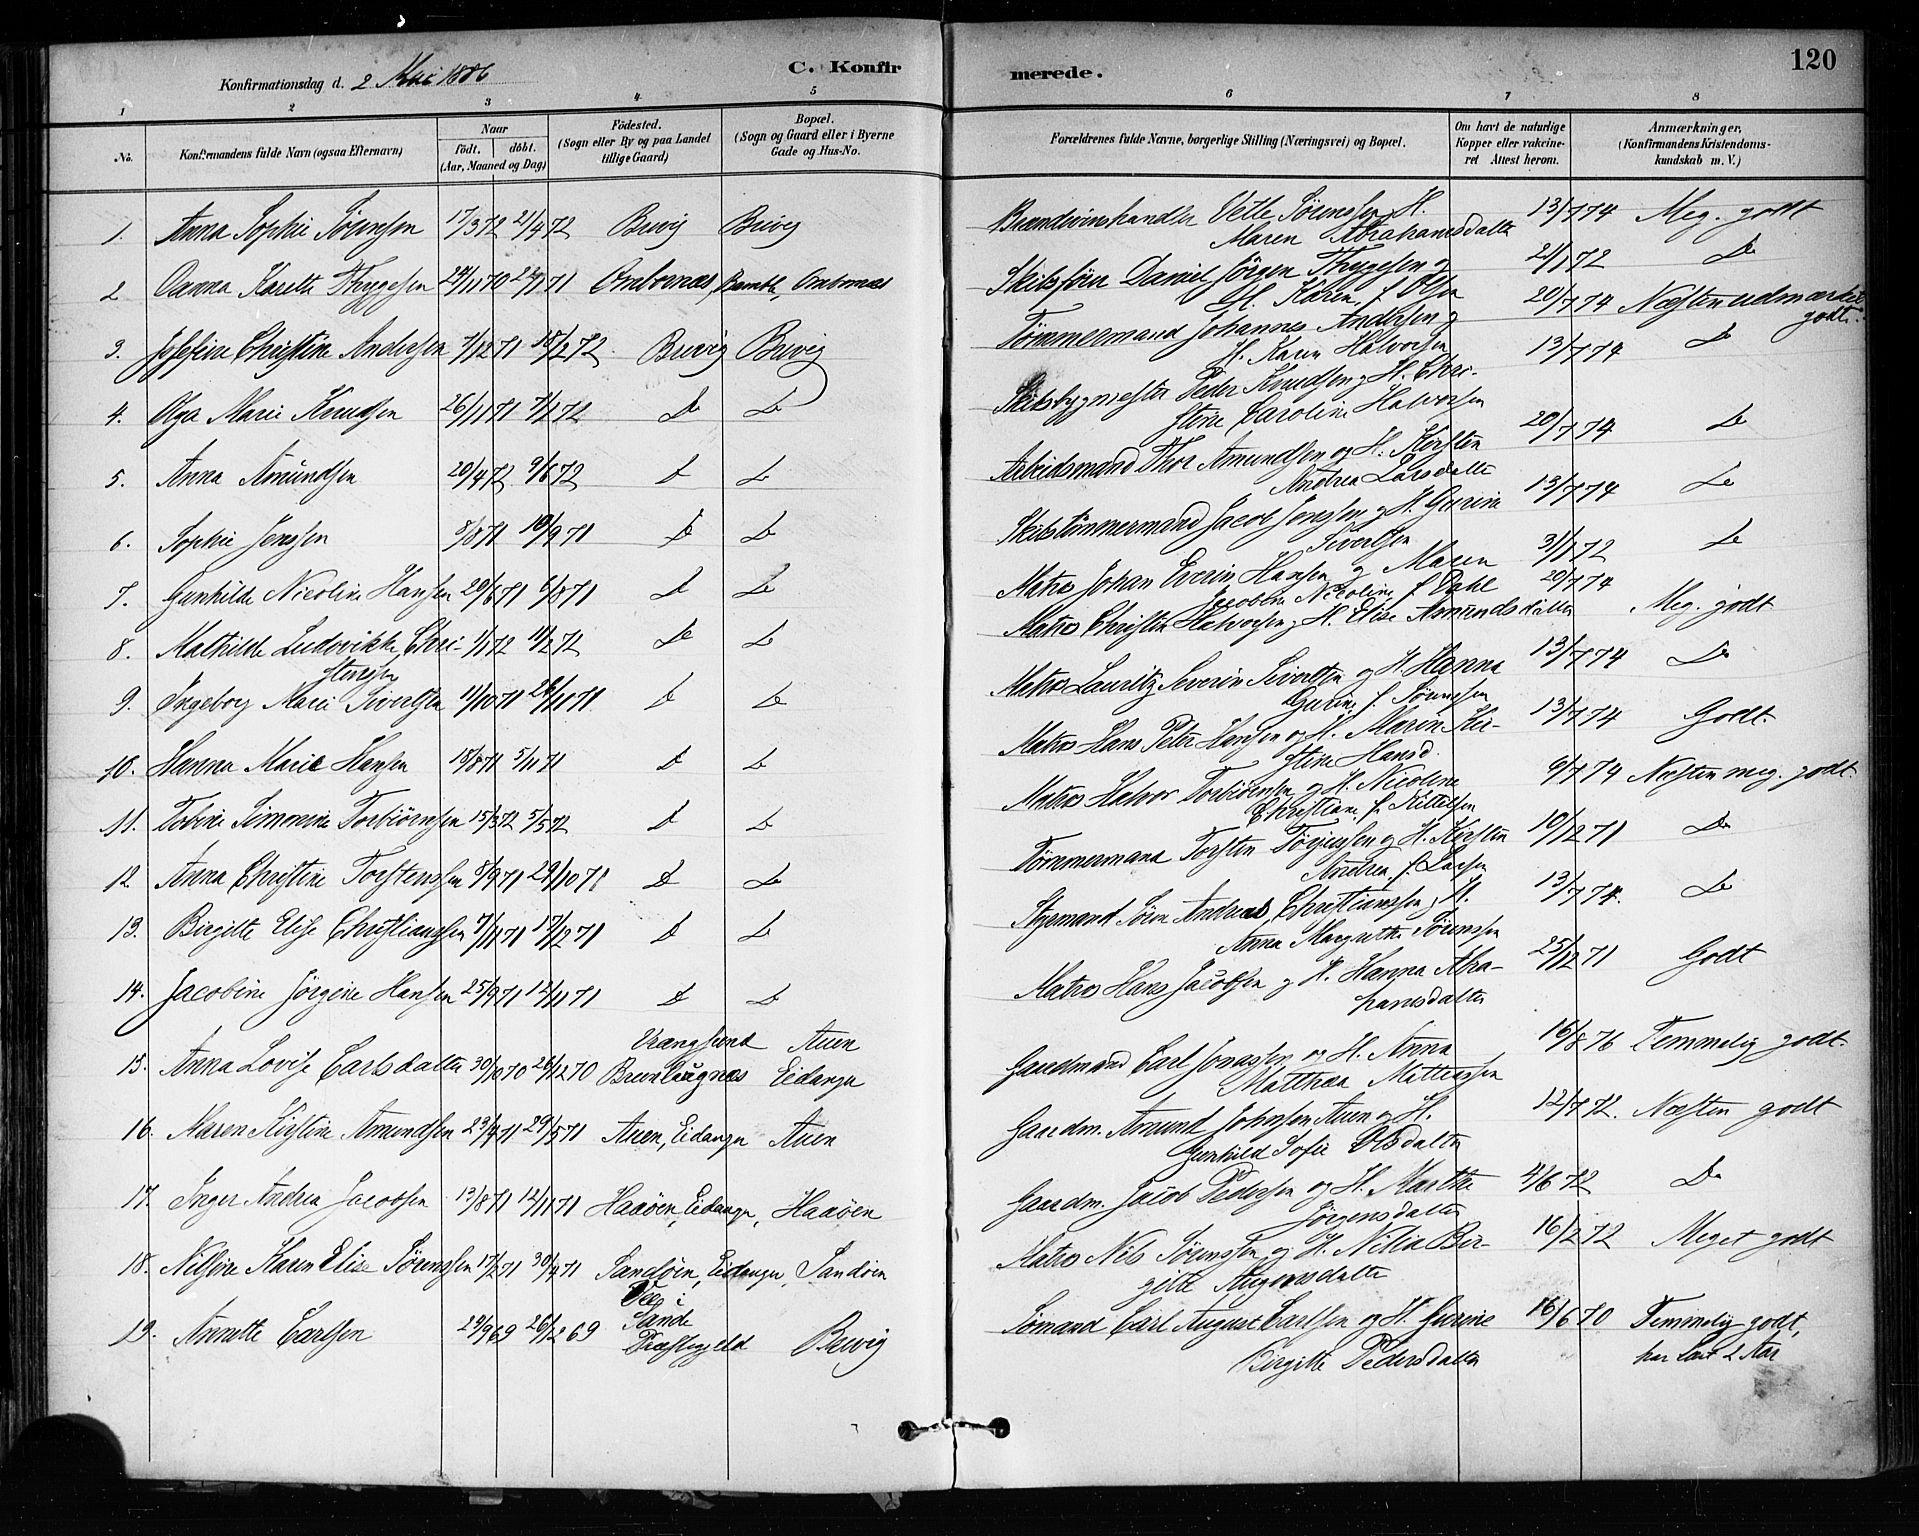 Konfirmationsdag d. 2 Mai 1886
C. Konfirmerede.
120
1 2 3 4 5 6 7 8
No.
Konfirmandens fulde Navn (ogsaa Efternavn)
Naar født. døbt. (Aar, Maaned og Dag)
Födested. (Sogn eller By og paa Landet tillige Gaard)
Bopæl. (Sogn og Gaard eller i Byerne Gade og Hus-No.
Forældrenes fulde Navne, borgerlige Stilling (Næringsvei) og Bopæl.
Om havt de naturlige Kopper eller vakcineret Attest herom.
Anmærkninger. (Konfirmandens Kristendomskundskab m. V.)
1. Anna Sophie Sørensen 17/3 72 21/4 72 Brevig Brevig Brændevinshandler Vetle Sørensen, H. Maren Abrahamsdatter 13/7 74 Meg. godt
2 Karette Thygesen 24/11 70 Ombornæs, Bamble, Ombornæs Skibsfører Daniel Jørgen Thygesen og H. Karen, f. Olsen 2/1 72 Do
3. Josefine Christine Andersen 7/12 71 18/2 72 Brevig Brevig Tømmermand Johannes Andersen og H. Karen Halvorsen 20/7 74 Næsten udmærket godt.
4. Olga Marie Knudsen 26/11 71 7/1 72 Do Do Skibsbygmester Peder Knudsen og H. Christine Caroline Halvorsen 13/7 74 Do
5. Anna Amundsen 20/4 72 9/6 72 Do Do Arbeidsmand Thor Amundsen og H. Kirstin Andrea Larsdatter 20/7 74 Do
6. Sophie Jensen 8/8 71 10/9 71 Do Do Skibstømmermand Jacob Jenssen og H. Gurine Sivertsen 13/7 74 Do
7. Gunhilde Nicoline Hansen 20/6 71 6/8 71 Do Do Matros Johan Everin Hansen og Maren Jacobine Nicoline f. Dahl 31/1 72 Do
8. Mathilde Ludovikke Christensen 1/1 72 11/2 72 Do Do Matros Christen Halvorsen og H. Elise Amundsdatter 20/7 74 Meg. godt
9. Ingeborg Marie Sivertsen 11/10 71 26/11 71 Do Do Matros Lauritz Severin Sivertsen og H. Hanna Gurine f. Sørensen 13/7 74 Do
10. Hanna Marie Hansen 18/8 71 5/11 71 Do Do Matros Hans Peter Hansen og H. Maren Kirstine Hansd. 13/7 74 Godt.
11. Tobine Simonine Torbiørnsen 15/3 72 5/5 72 Do Do Matros Halvor Torbiørnsen og H. Nicoline Christiane, f. Kittelsen 9/7 74 Næsten meg. godt.
12. Anna Christine Torstensen 8/9 71 29/10 71 Do Do Tømmermand Torsten Torjussen og H. Kirstin Andrea, f. Larsen 10/12 71 Do
13. Birgitte Elise Christiansen 7/11 71 17/12 71 Do Do Styrmand Søren Andreas Christianssen og H. Anna Margrethe Sørensen 13/7 74. Do
14. Jacobine Jørgine Hansen 25/9 71 12/11 71 Do Do Matros Hans Jacobsen og H. Hanna Abrahamsdatter 25/12 71 Godt
15. Anna Lovise Carlsdatter 30/10 70 26/12 70 Brunlaugnæs Auen Eidanger Gaardmand Carl Jonassen og H. Anna Matthea Mathiassen 16/8 76 Temmelig godt.
16. Maren Kirstine Amundsen 23/4 71 29/5 71 Auen, Eidanger Auen Gaardm. Amund Johnsen Auen og H. Gunhild Sofie Olsdatter 12/7 72. Næsten godt
17. Inger Andrea Jacobsen 13/8 71 12/11 71 Haaøen, Eidanger, Haaøen Gaardm. Jacob Pedersen og H. Marthe Jørgensdatter 4/6 72 Do
18. Nilsine Karen Elise Sørensen 17/2 71 30/4 71 Sandøen, Eidanger, Sandøen Matros Nils Sørensen og H. Nilia Birgitte 16/2 72 Meget godt
19. Annette Carlsen 24/9 69 26/12 69 i Sande Præstegjeld Brevig Sømand Carl August Carlsen og H. Gurine Birgitte Pedersdatter 16/6 70 Temmelig godt, har læst 2 Aar